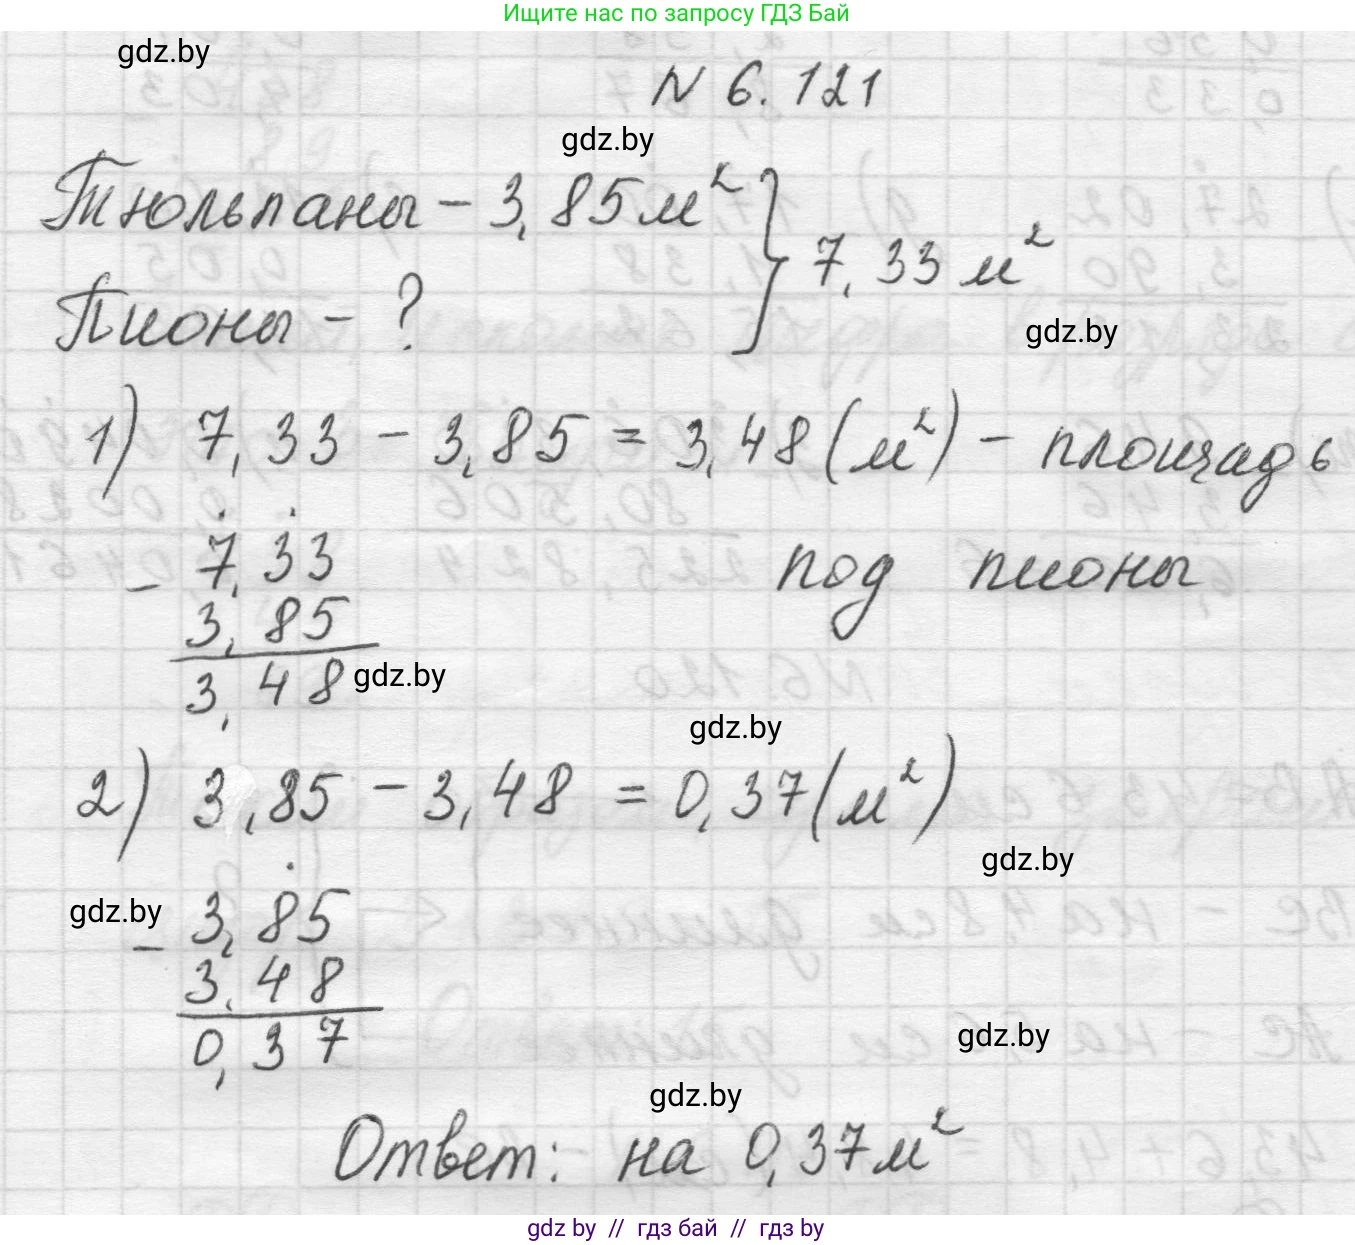 Ищите нас по запросу ГДЗ Бай
gdz.by
N 6.121
gdz.by
Тюльпаны – 3,85 м²
Пионы – ?
} 7,33 м²
gdz.by
1) 7,33 – 3,85 = 3,48 (м²) – площадь
под пионы
7,33
– 3,85
3,48
gdz.by
gdz.by
2) 3,85 – 3,48 = 0,37 (м²)
gdz.by
gdz.by
3,85
– 3,48
0,37
gdz.by
gdz.by
Ответ: на 0,37 м²
gdz by // гдз бай // гдз by